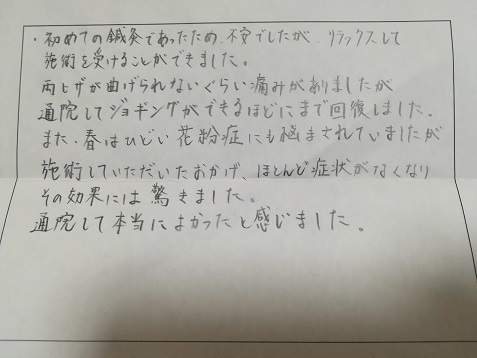 ・初めての鍼灸であったため、不安でしたが、リラックスして
施術を受けることができました。
両ヒザが曲げられないぐらい痛みがありましたが
通院してジョギングができるほどにまで回復しました。
また、春はひどい花粉症にも悩まされていましたが
施術していただいたおかげ、ほとんど症状がなくなり
その効果には驚きました。
通院して本当によかったと感じました。